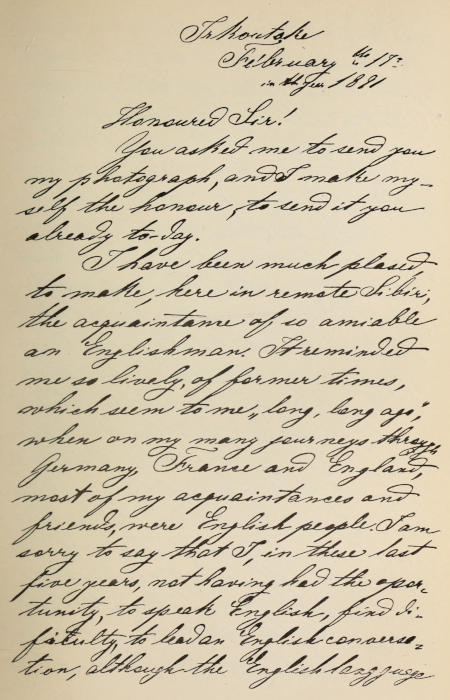 Irkoutske
February the 17:
in the year 1891
Honoured Sir!
You asked me to send you
my photograph, and I make my-
self the honour, to send it you
already to-day.
I have been much plased
to make, here in remote Sibiri,
the acquaintance of so amiable
an Englishman. It reminded
me so lively, of former times,
which seem to me „long, long ago",
when on my many journeys through
Germany, France and England,
most of my acquaintances and
friends, were English people. I am
sorry to say that I, in these last
five years, not having had the opor-
tunity, to speak English, find di-
faculty, to lead an English conversa-
tion, although the English